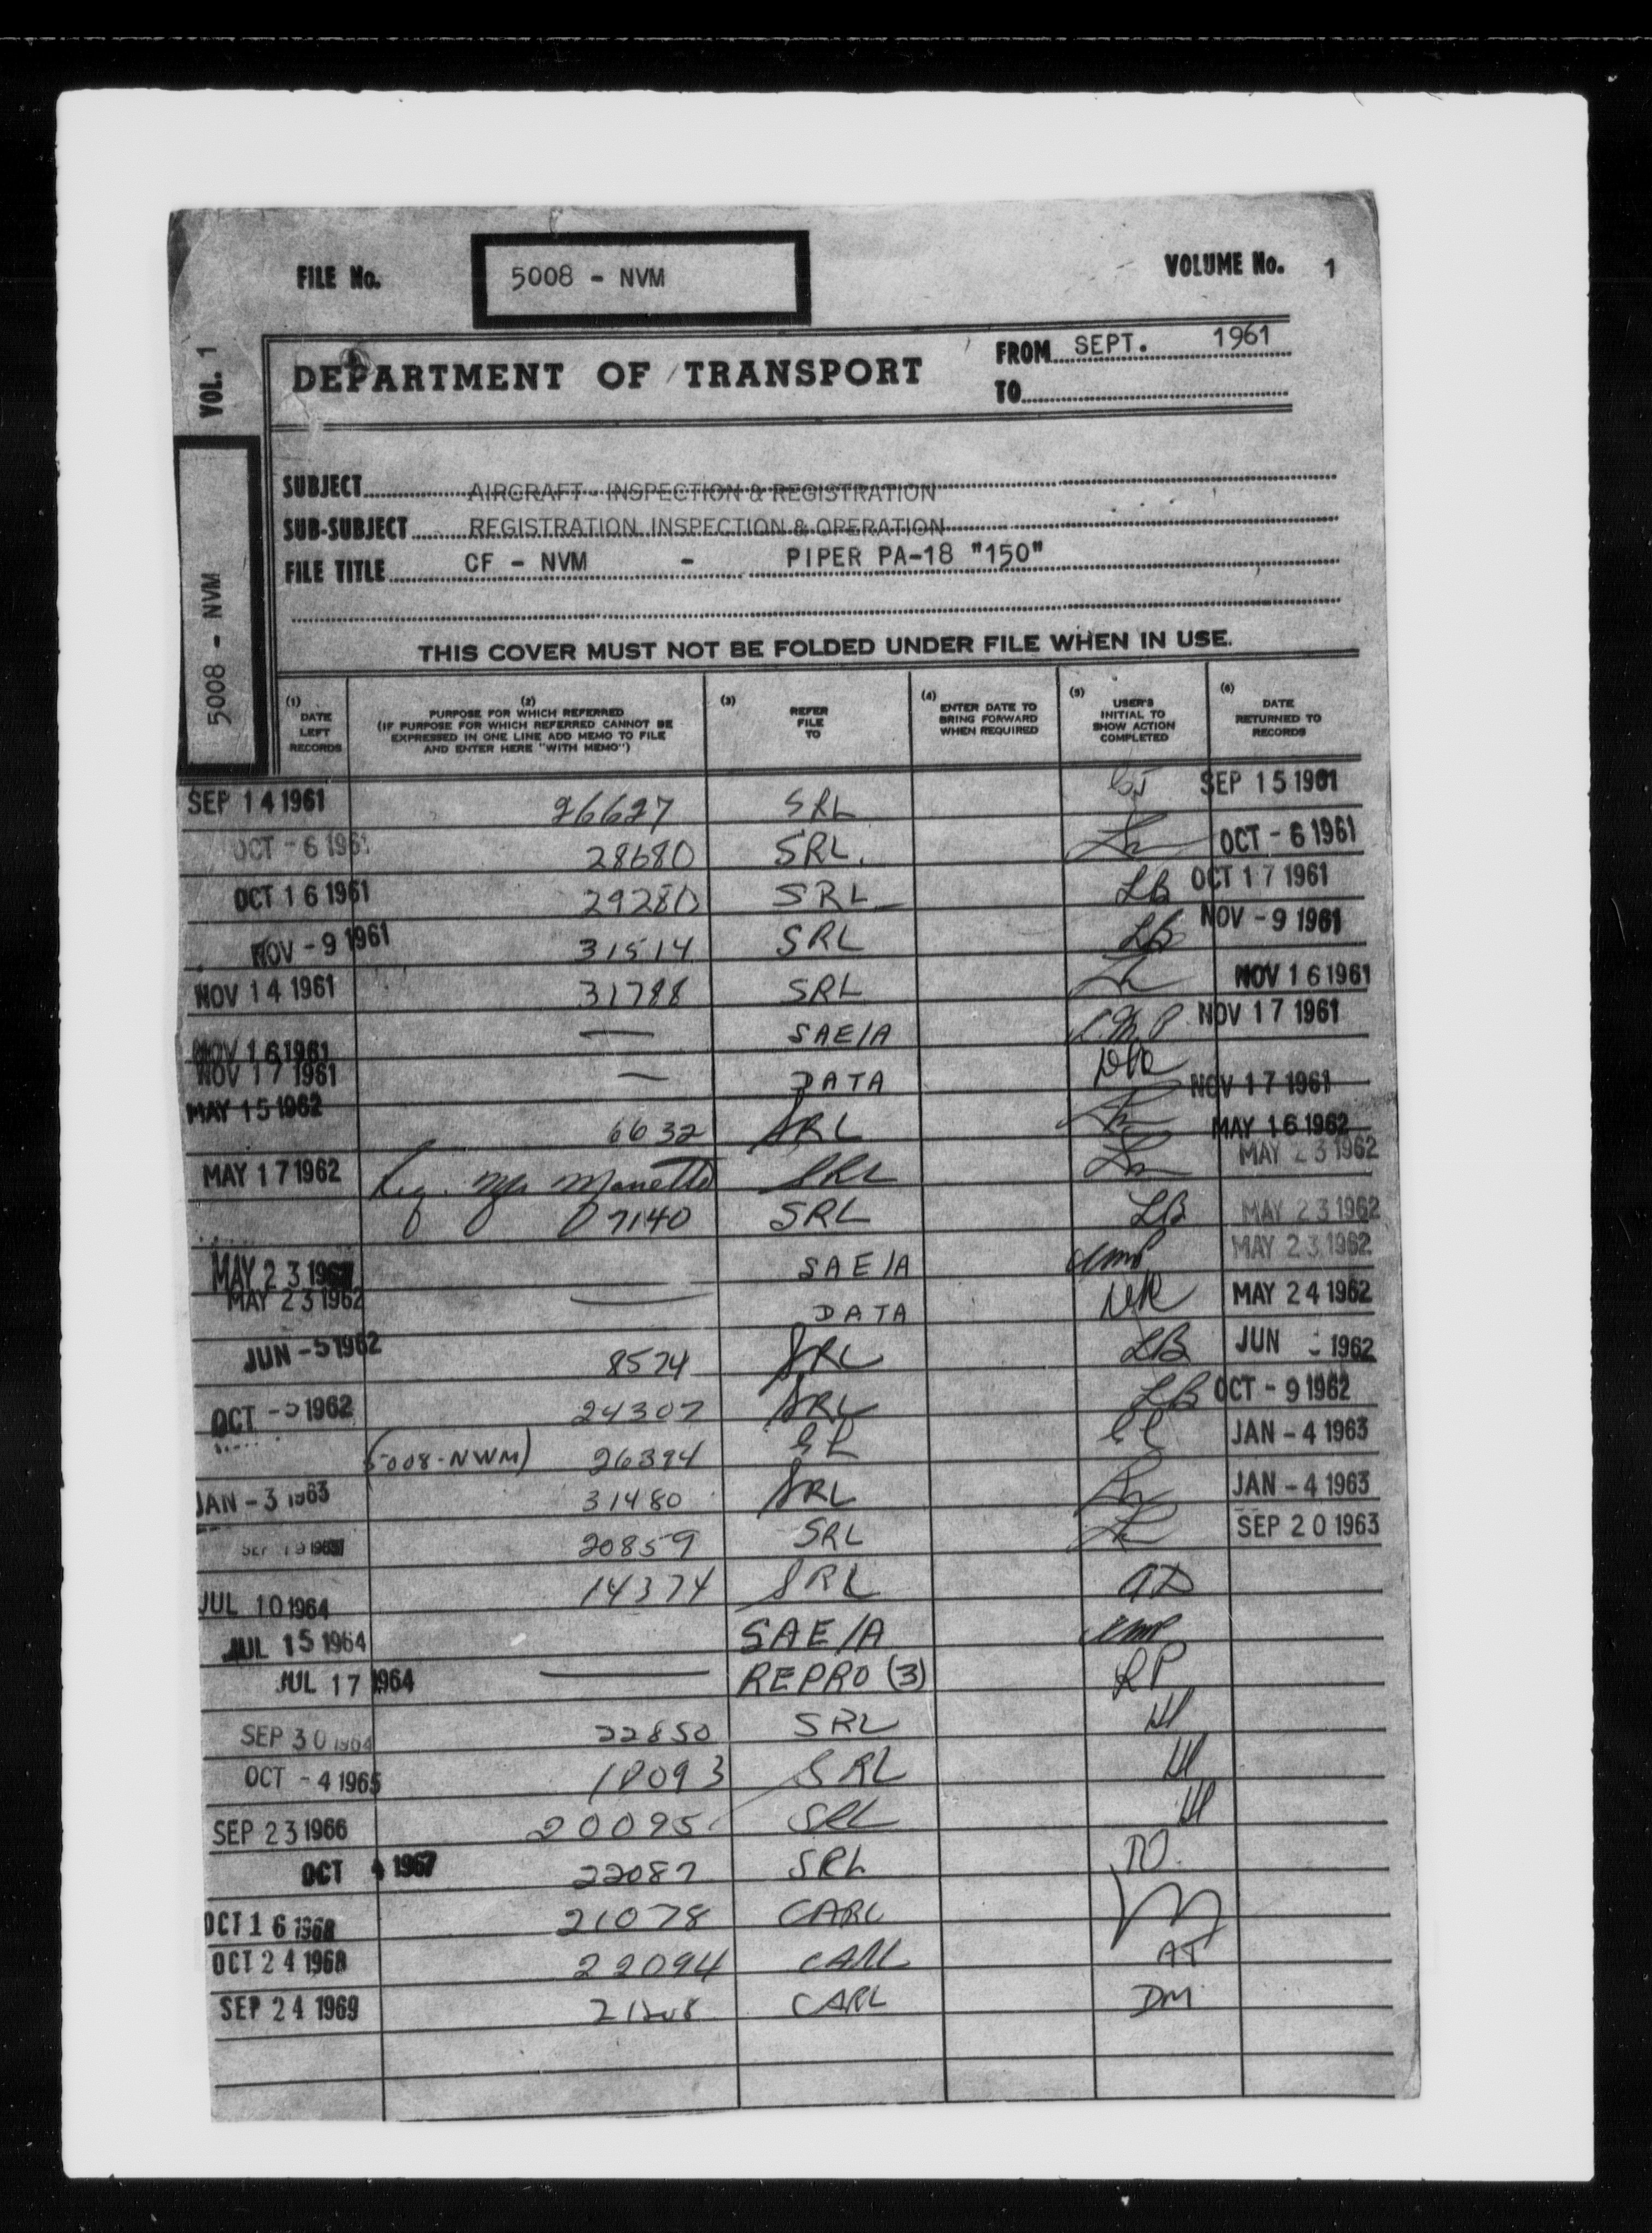 FILE No. 5008 - NVM VOLUME No. 1
VOL. 1
5008 - NVM
DEPARTMENT OF TRANSPORT
FROM SEPT. 1961
TO
SUBJECT AIRCRAFT - INSPECTION & REGISTRATION
SUB-SUBJECT REGISTRATION INSPECTION & OPERATION
FILE TITLE CF - NVM - PIPER PA-18 "150"
THIS COVER MUST NOT BE FOLDED UNDER FILE WHEN IN USE.
(1) DATE LEFT RECORDS
(2) PURPOSE FOR WHICH REFERRED (IF PURPOSE FOR WHICH REFERRED CANNOT BE EXPRESSED IN ONE LINE ADD MEMO TO FILE AND ENTER HERE "WITH MEMO")
(3) REFER FILE TO
(4) ENTER DATE TO BRING FORWARD WHEN REQUIRED
(5) USER'S INITIAL TO SHOW ACTION COMPLETED
(6) DATE RETURNED TO RECORDS
SEP 14 1961 26627 SRL SEP 15 1961
OCT - 6 1961 28680 SRL. OCT - 6 1961
OCT 16 1961 29280 SRL LB OCT 17 1961
NOV - 9 1961 31514 SRL LB NOV - 9 1961
NOV 14 1961 31788 SRL NOV 16 1961
NOV 16 1961 — SAE/A NOV 17 1961
NOV 17 1961 — DATA NOV 17 1961
MAY 15 1962 6632 SRL MAY 16 1962
MAY 17 1962 SRL MAY 23 1962
7140 SRL LB MAY 23 1962
MAY 23 1962 SAE/A MAY 23 1962
MAY 23 1962 — DATA MAY 24 1962
JUN - 5 1962 8574 SRL LB JUN 1962
OCT 1962 24307 SRL LB OCT - 9 1962
(5008-NWM) 26394 JAN - 4 1963
JAN - 3 1963 31480 SRL JAN - 4 1963
SEP 19 1963 20859 SRL SEP 20 1963
JUL 10 1964 14374 SRL
JUL 15 1964 SAE/A
JUL 17 1964 — REPRO (3) RP
SEP 30 1964 22850 SRL
OCT - 4 1965 18093 SRL
SEP 23 1966 20095 SRL
OCT 4 1967 22087 SRL
OCT 16 1968 21078 CARL
OCT 24 1968 22094 CARL AT
SEP 24 1969 CARL DM